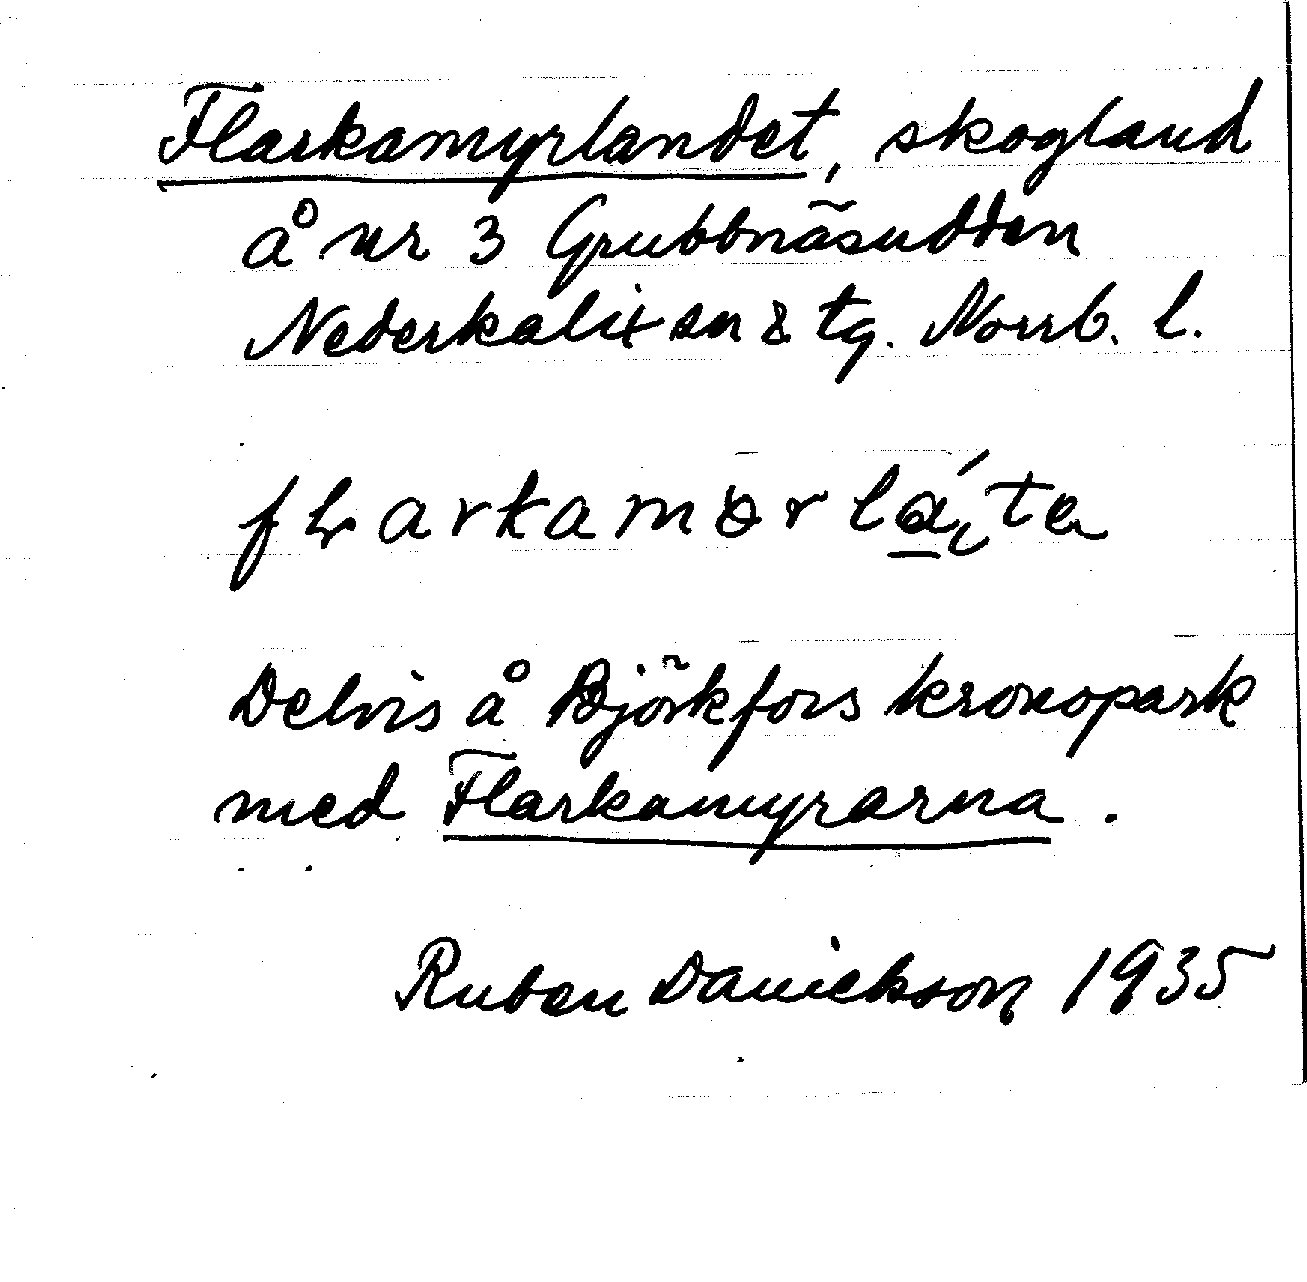 Flarkamyrlandet, skogland
å nr 3 Grubbnäsudden
Nederkalix sn & tg. Norrb. l.
Delvis å Björkfors kronopark
med Flarkamyrarna.
Ruben Danielsson 1935